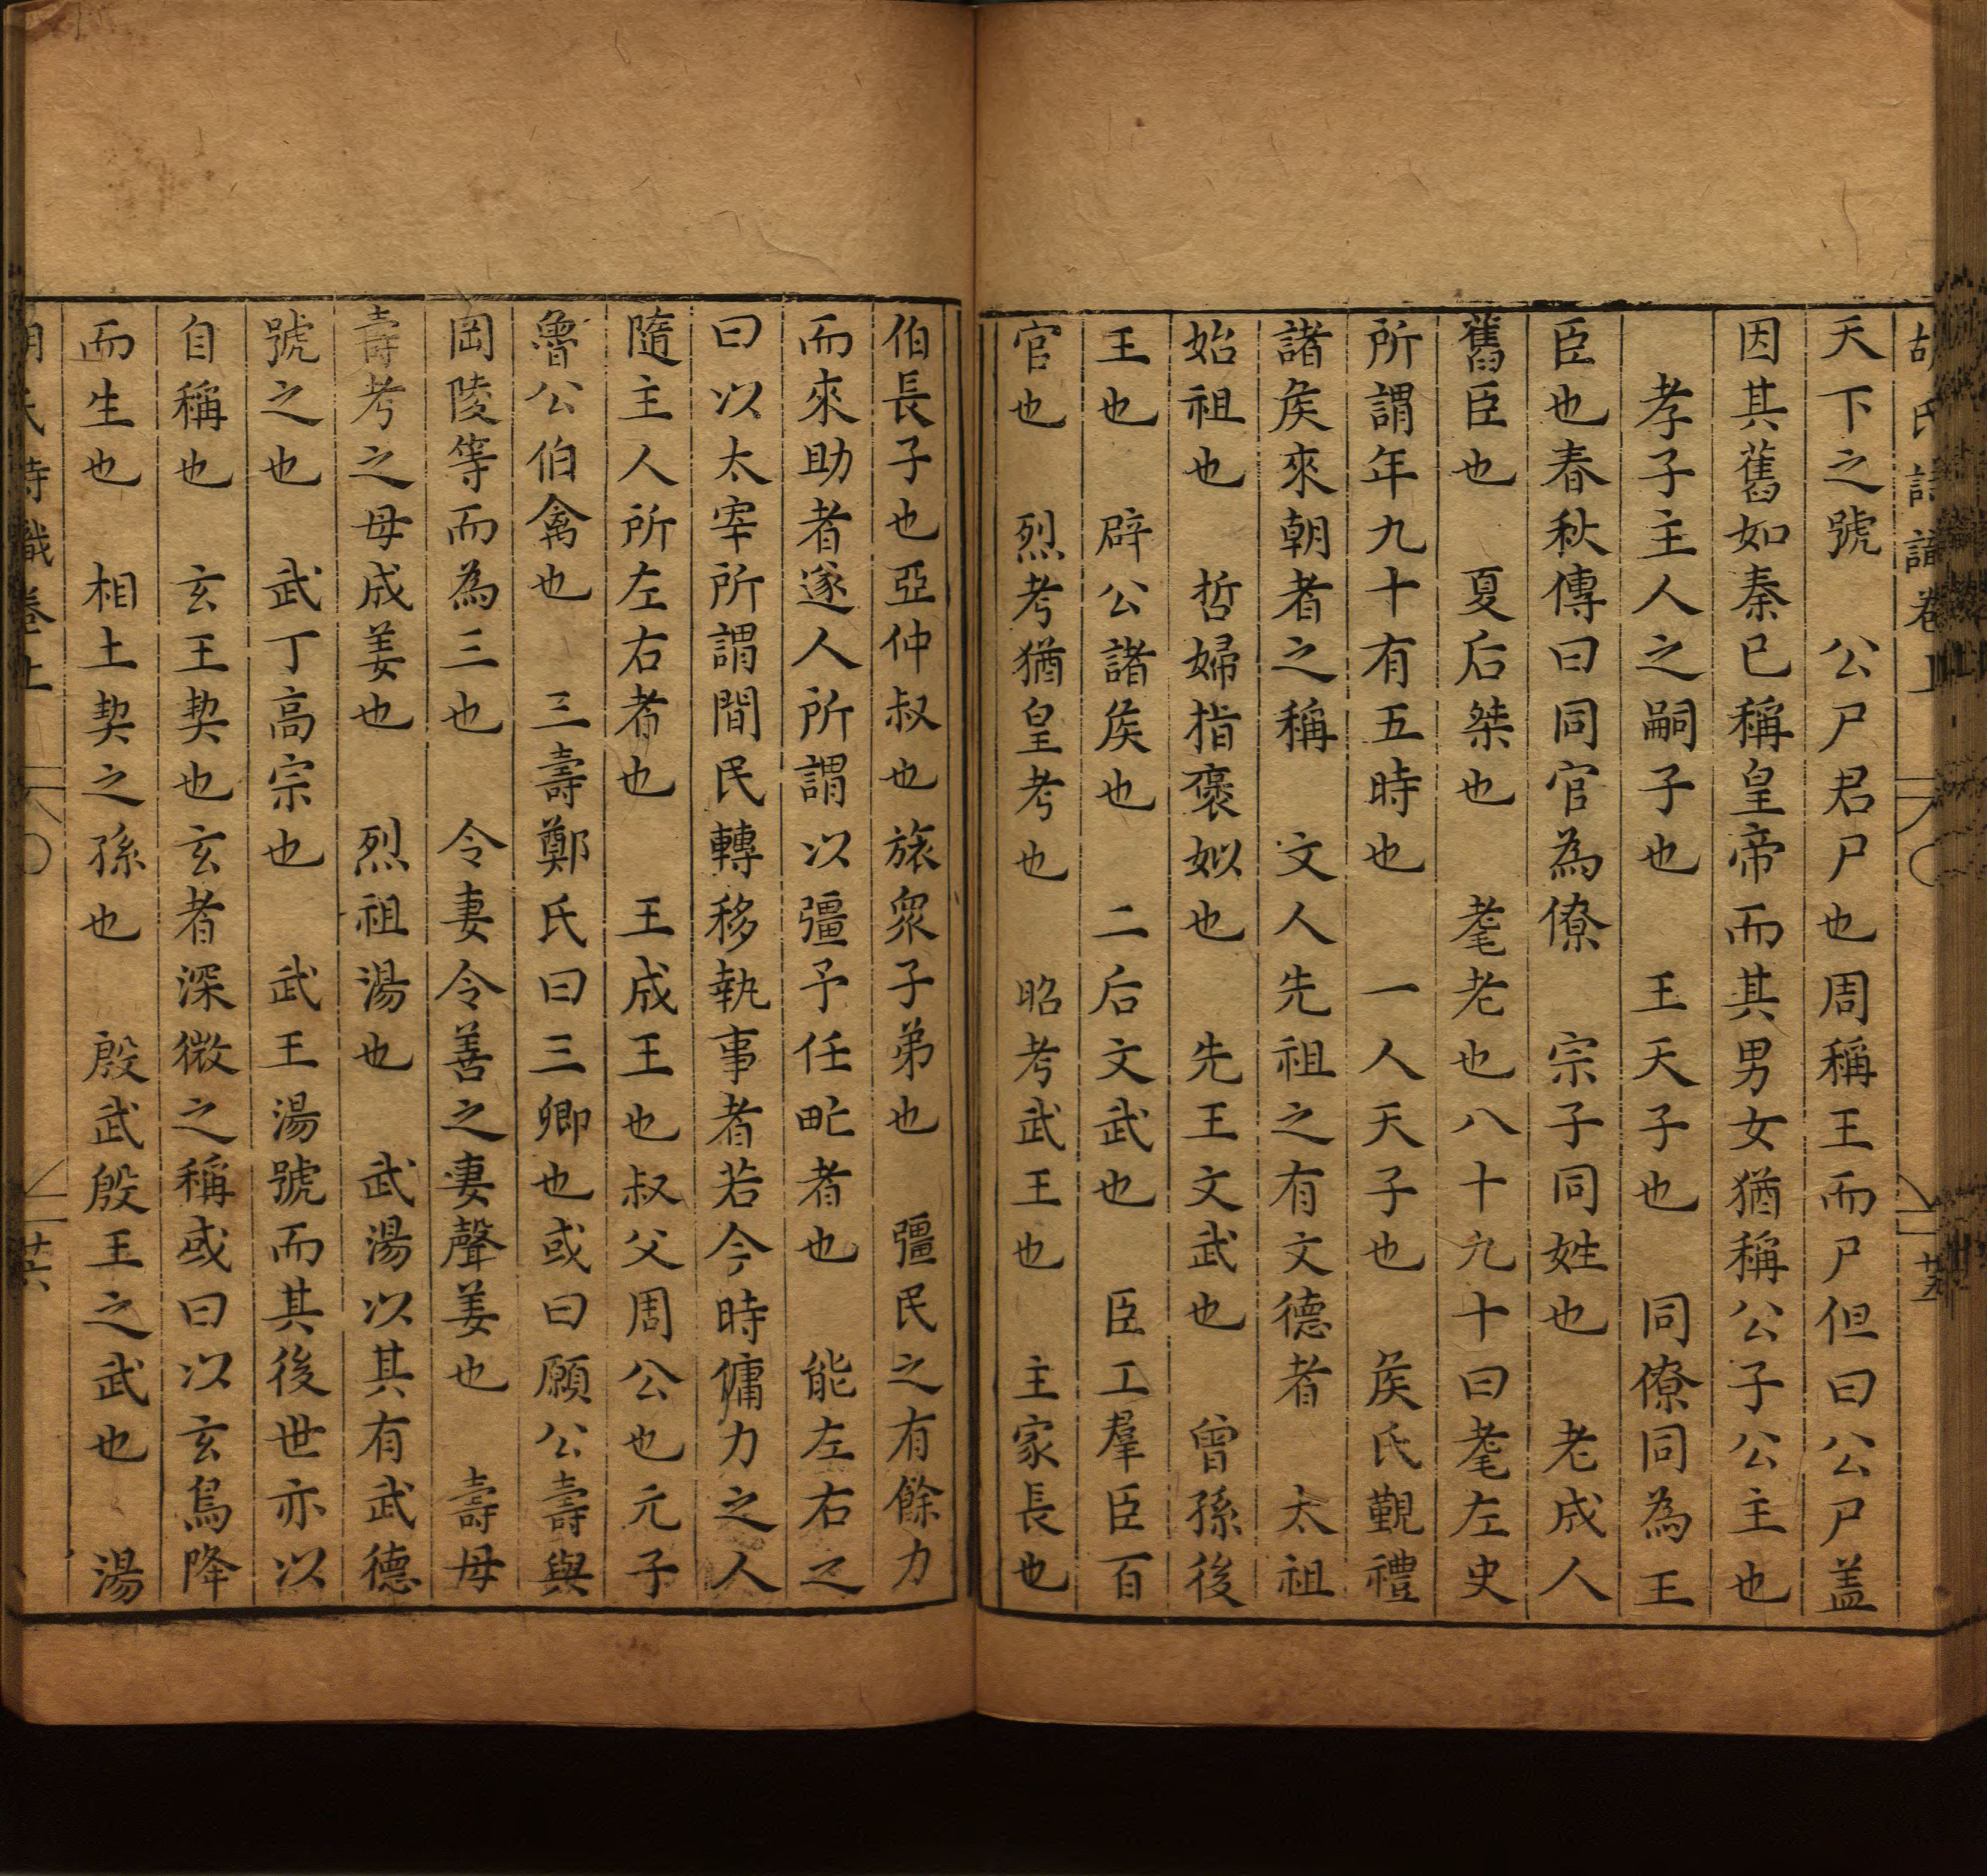 胡氏詩識卷上 廿五
天下之號　公尸君尸也周稱王而尸但曰公尸盖
因其舊如秦已稱皇帝而其男女猶稱公子公主也
孝子主人之嗣子也　王天子也　同僚同為王
臣也春秋傳曰同官為僚　宗子同姓也　老成人
舊臣也　夏后桀也　耄老也八十九十曰耄左史
所謂年九十有五時也　一人天子也　矦氏覲禮
諸矦來朝者之稱　文人先祖之有文德者　太祖
始祖也　哲婦指褒姒也　先王文武也　曾孫後
王也　辟公諸矦也　二后文武也　臣工羣臣百
官也　烈考猶皇考也　昭考武王也　主家長也
伯長子也亞仲叔也旅衆子弟也　彊民之有餘力
而來助者遂人所謂以彊予任甿者也　能左右之
曰以太宰所謂閒民轉移執事者若今時傭力之人
隨主人所左右者也　王成王也叔父周公也元子
魯公伯禽也　三壽鄭氏曰三卿也或曰願公壽與
岡陵等而為三也　令妻令善之妻聲姜也　壽母
壽考之母成姜也　烈祖湯也　武湯以其有武德
號之也　武丁高宗也　武王湯號而其後世亦以
自稱也　玄王契也玄者深微之稱或曰以玄鳥降
而生也　相土契之孫也　殷武殷王之武也　湯
胡氏詩識卷上 廿六